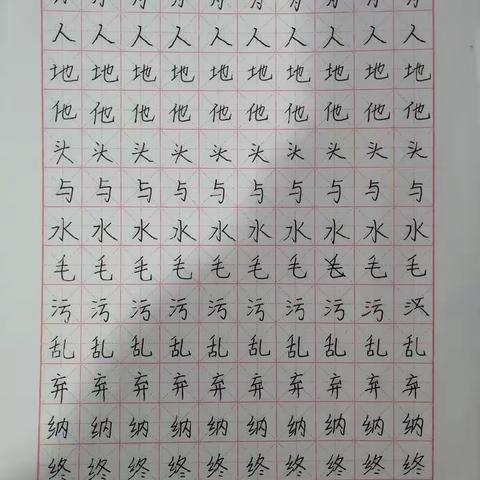 人人人人人人人人人人
地地地地地地地地地地
他他他他他他他他他他
头头头头头头头头头头
与与与与与与与与与与
水水水水水水水水水水
毛毛毛毛毛毛毛毛毛
污污污污污污污污污
乱乱乱乱乱乱乱乱乱乱
弃弃弃弃弃弃弃弃弃弃
纳纳纳纳纳纳纳纳纳纳
终终终终终终终终终终